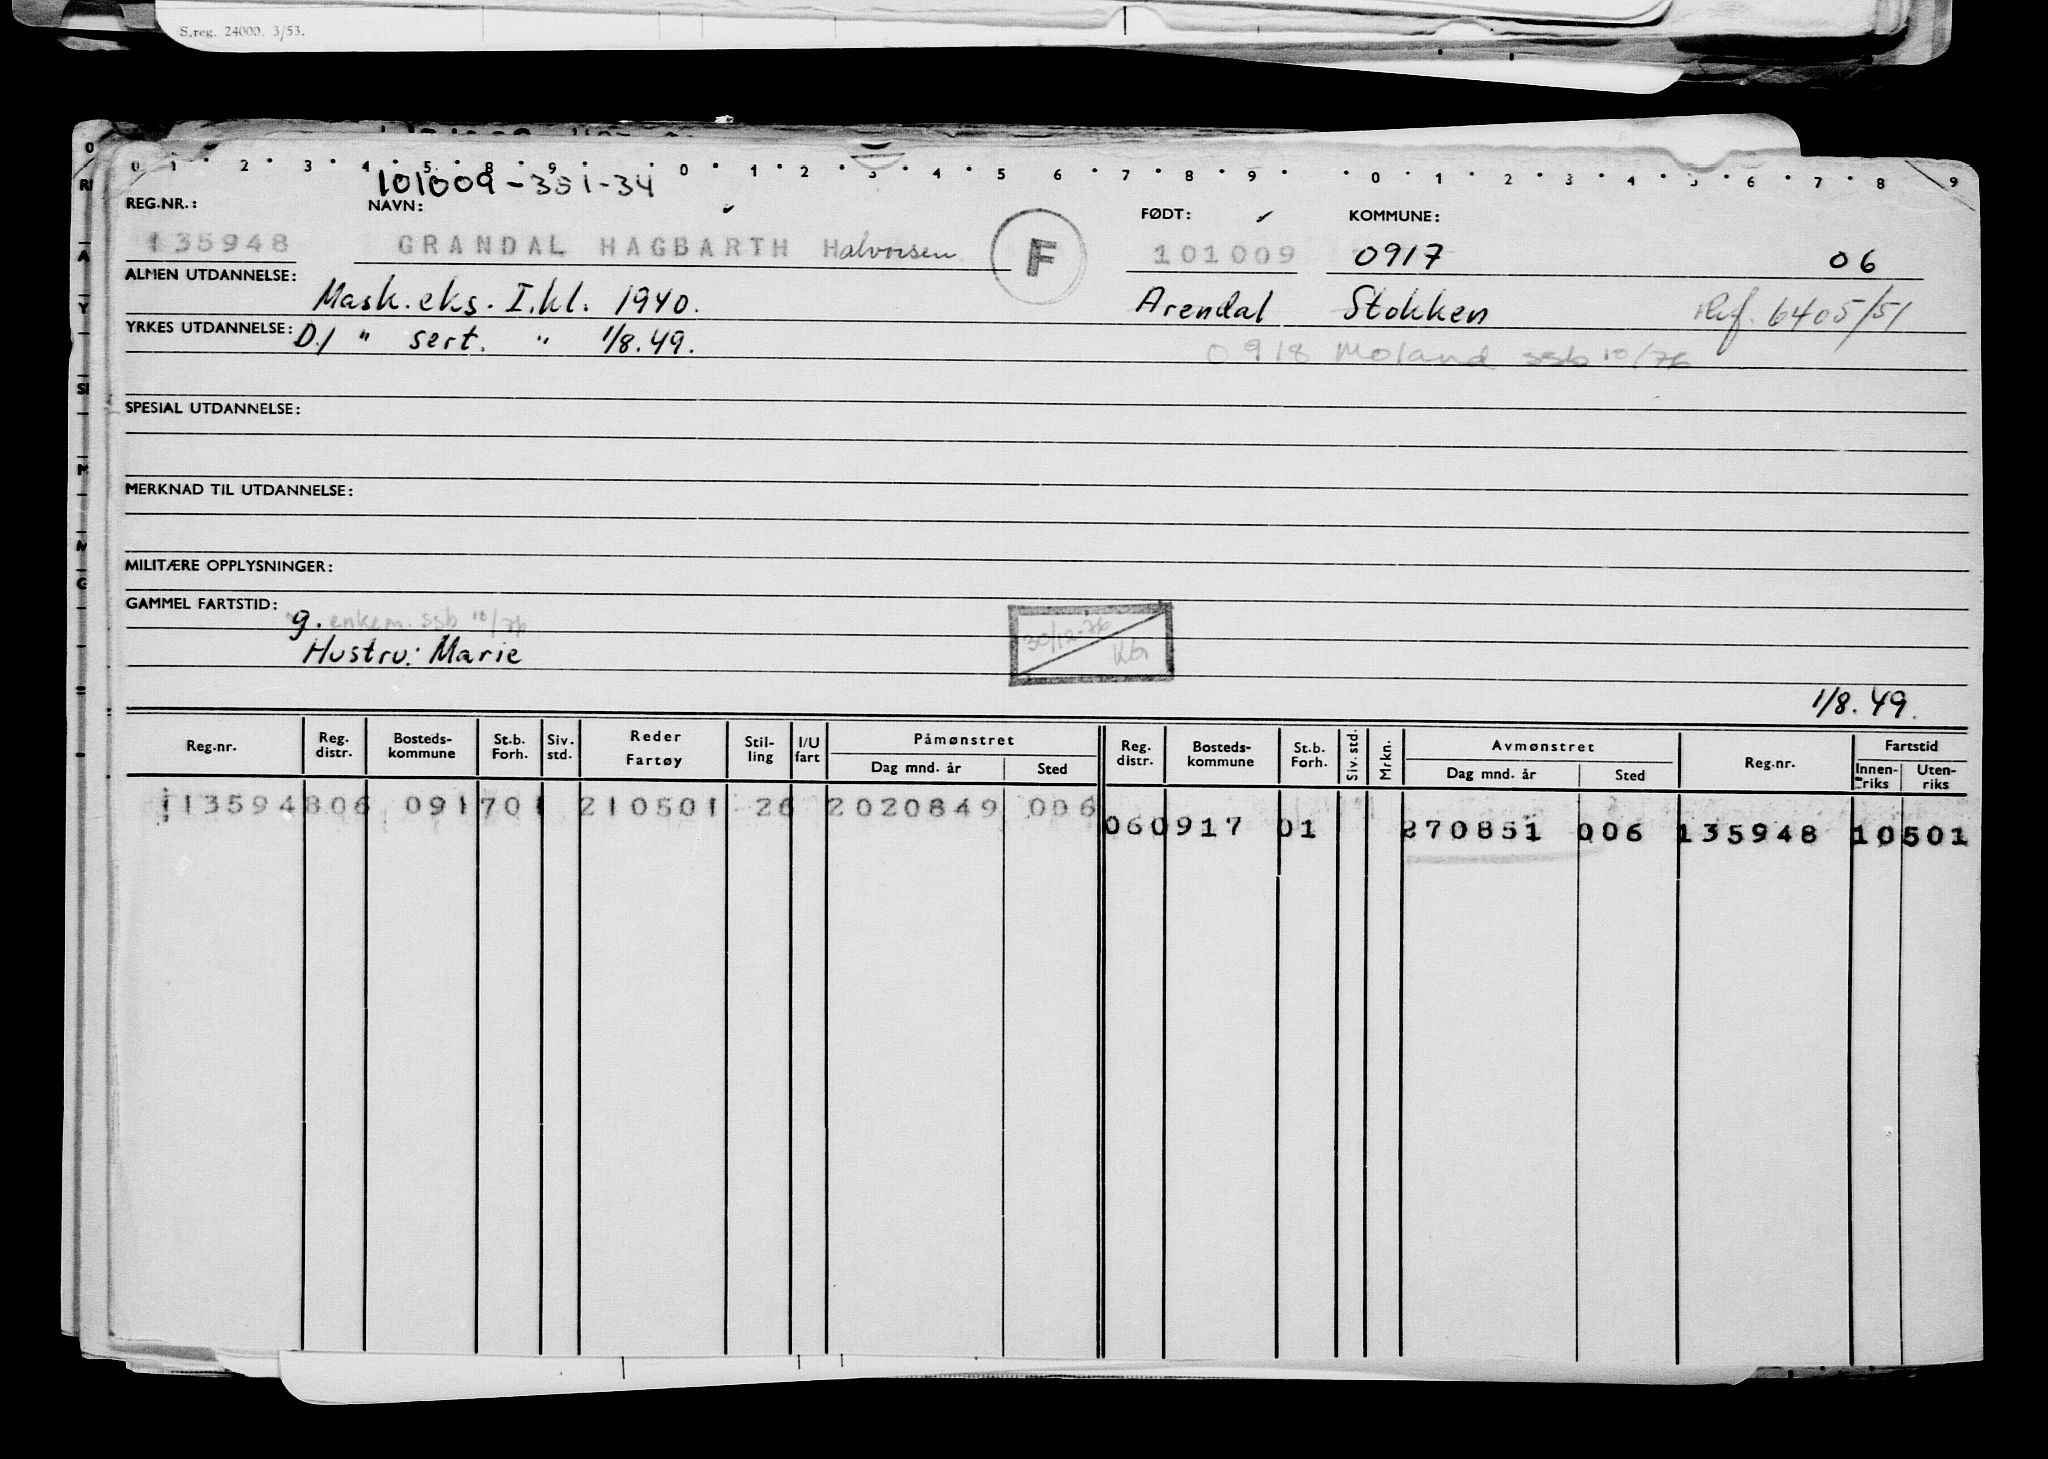 S.reg. 24000. 3/53.
0 1 2 3 4 5 8 9 0 1 2 3 4 5 6 7 8 9 0 1 2 3 4 5 6 7 8 9
101009-351-34
REG.NR.: NAVN: FØDT: KOMMUNE:
135948 GRANDAL HAGBARTH Halvorsen F 101009 0917 06
ALMEN UTDANNELSE: Mask. eks. I. kl. 1940. Arendal Stokken Ref. 6405/51
YRKES UTDANNELSE: D/ " sert. " 1/8.49.
0918 Moland ssb 10/76
SPESIAL UTDANNELSE:
MERKNAD TIL UTDANNELSE:
MILITÆRE OPPLYSNINGER:
GAMMEL FARTSTID:
g. enkem. ssb 10/76
Hustru: Marie
30/12-76
1/8.49.
Reg.nr. Reg. distr. Bosteds-kommune St.b. Forh. Siv. std. Reder Fartøy Stil-ling I/U fart Påmønstret Dag mnd. år Sted Reg. distr. Bosteds-kommune St.b. Forh. Siv. std. Mrkn. Avmønstret Dag mnd. år Sted Reg.nr. Fartstid Innen-riks Uten-riks
135948 06 0917 01 210501 26 2 020849 006
06 0917 01 270851 006 135948 10501